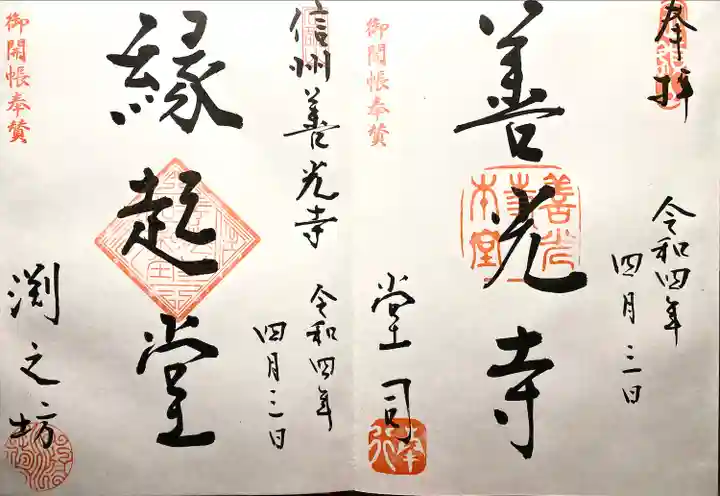 奉拝
令和四年
四月三日
善光寺
善光寺本堂
堂司
御開帳奉賛
信州善光寺
令和四年
四月三日
縁起堂
渕之坊
御開帳奉賛